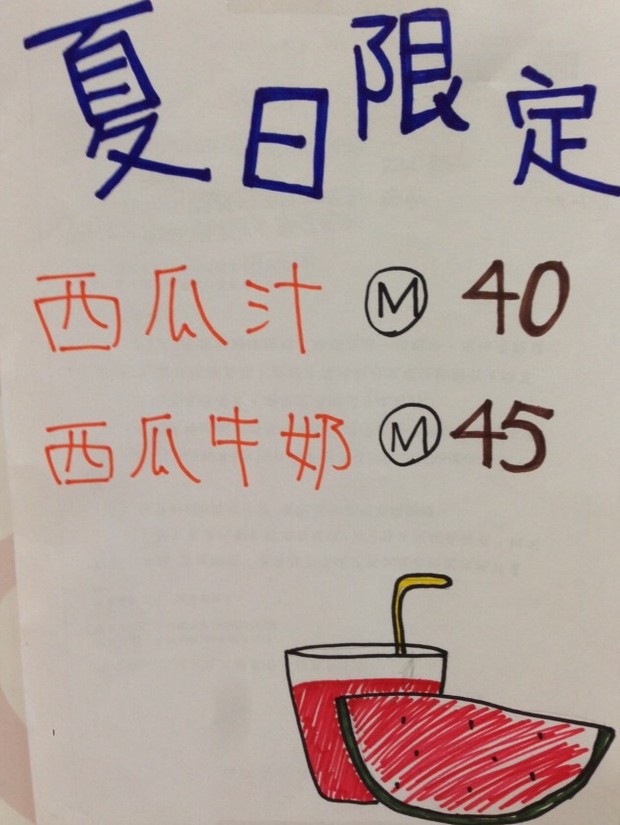 夏日限定
西瓜汁 Ⓜ 40
西瓜牛奶 Ⓜ 45